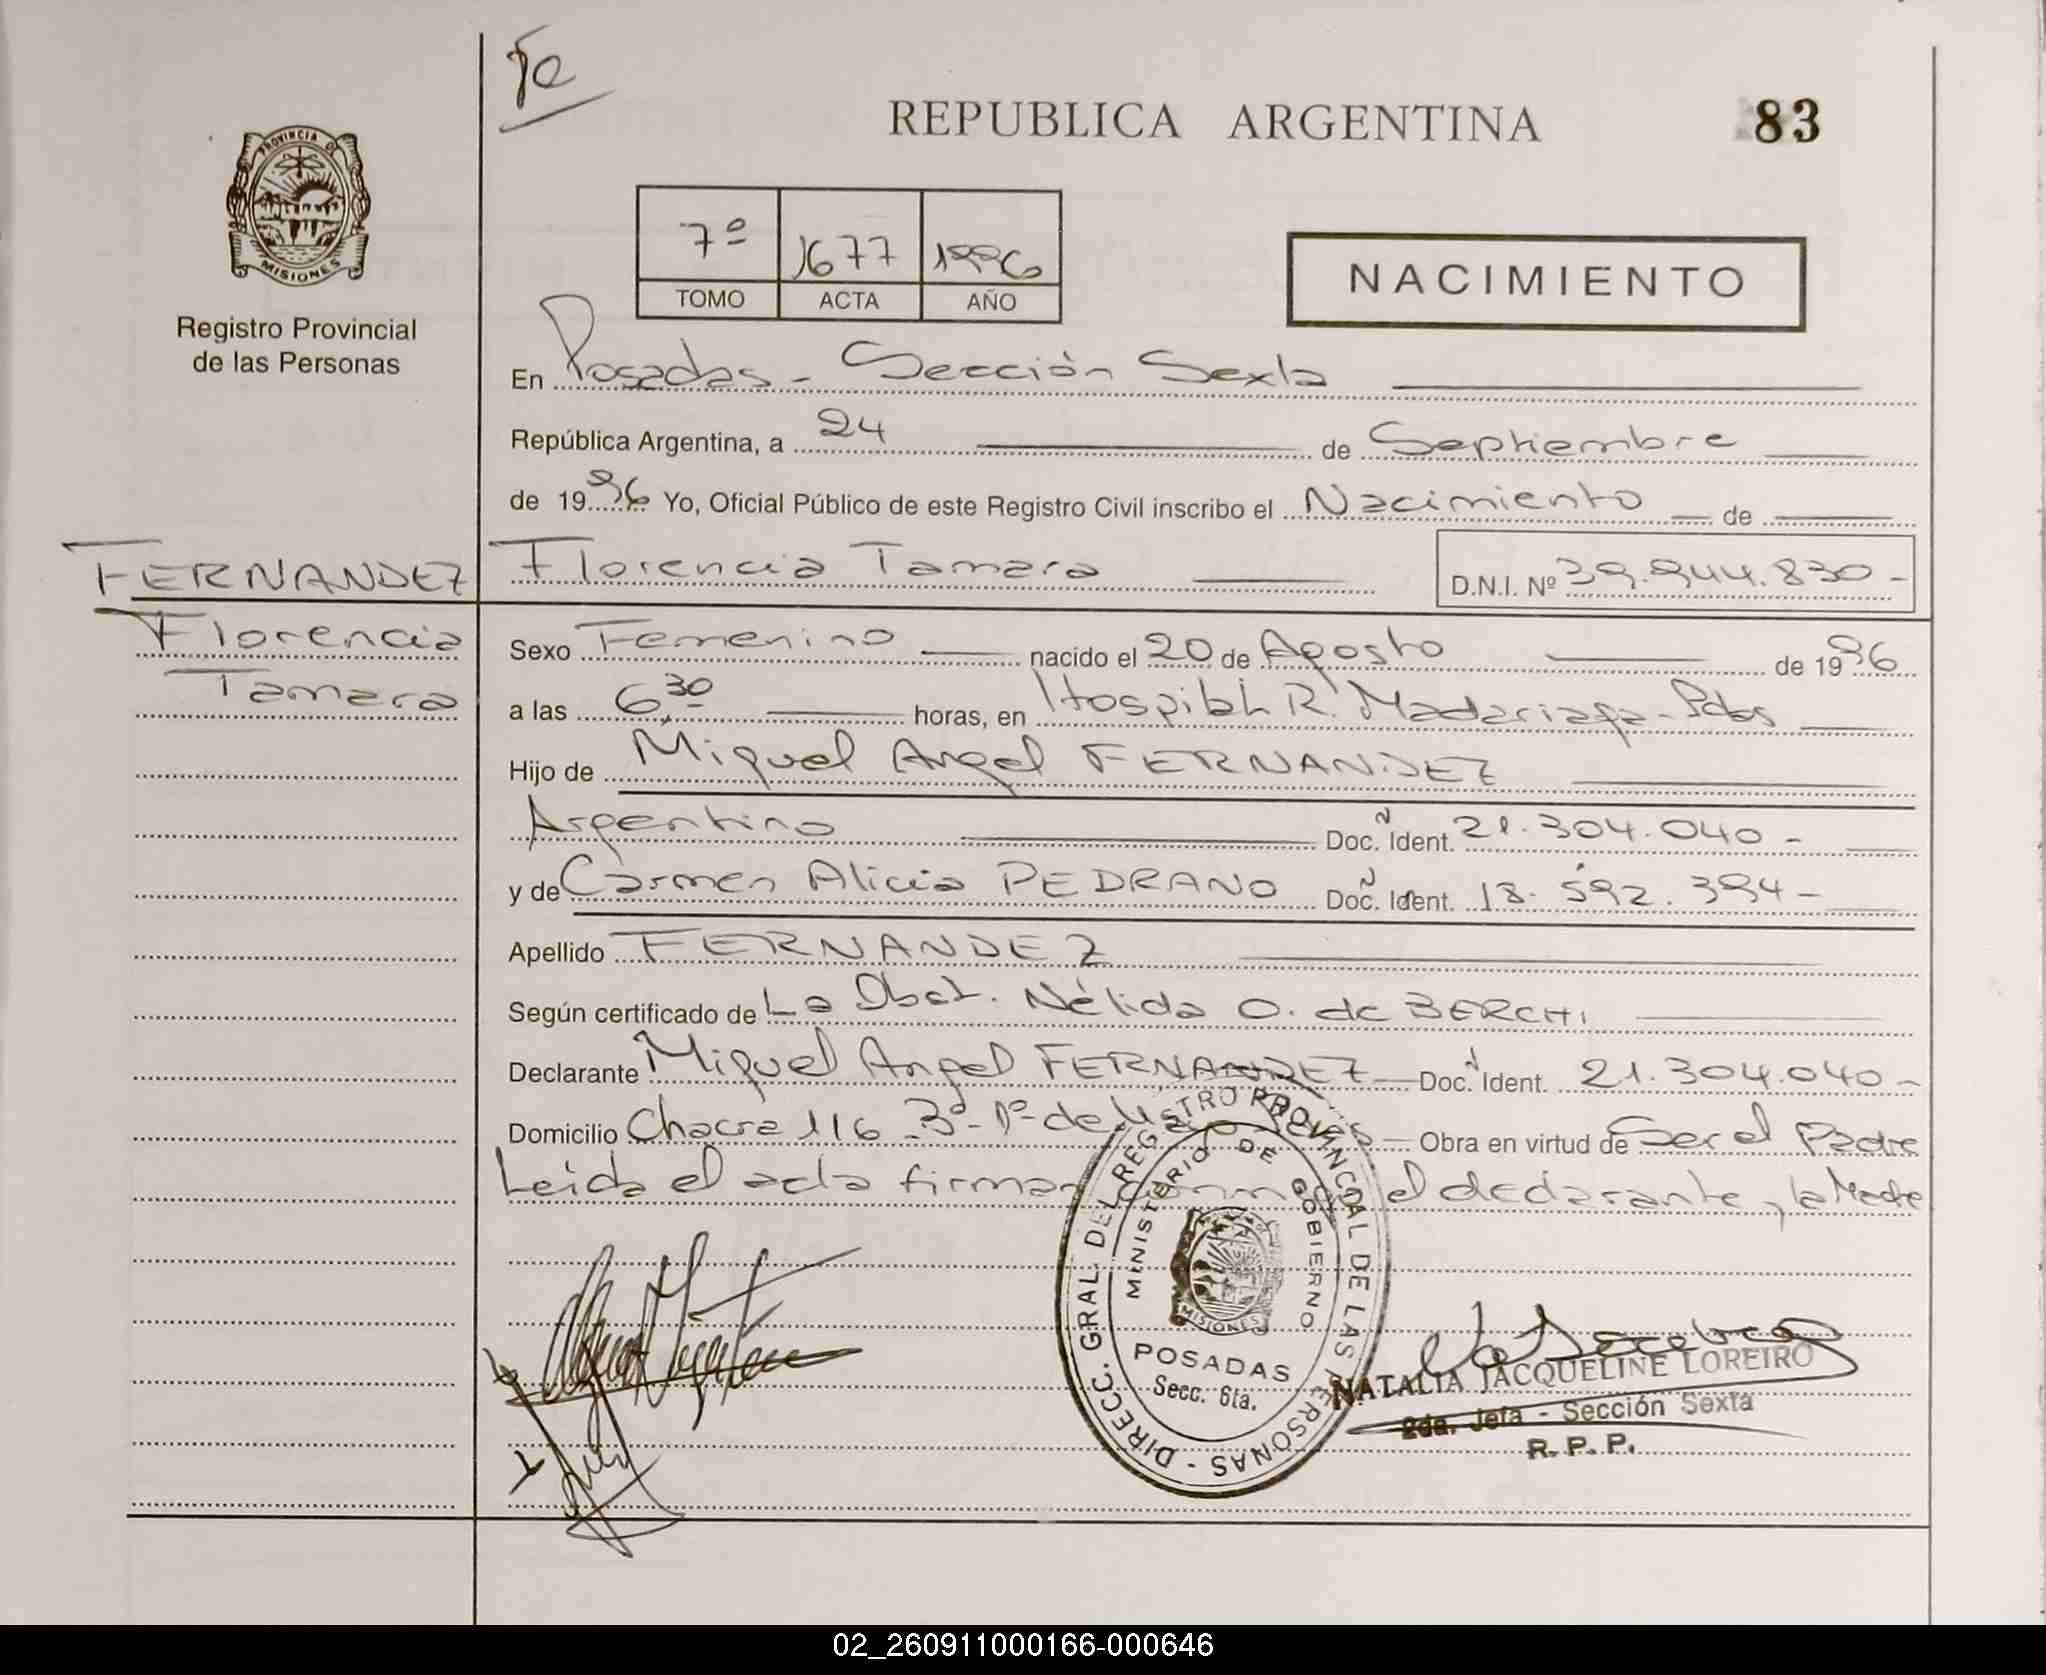 Fe
REPUBLICA ARGENTINA
83
PROVINCIA DE
MISIONES
Registro Provincial
de las Personas
7º 1677 1996
TOMO ACTA AÑO
NACIMIENTO
En Posadas - Sección Sexta
República Argentina, a 24 de Septiembre
de 1996 Yo, Oficial Público de este Registro Civil inscribo el Nacimiento de
FERNANDEZ Florencia Tamara D.N.I. Nº 39.944.830-
Florencia
Tamara
Sexo Femenino nacido el 20 de Agosto de 1996
a las 6,30 horas, en Hospital R. Madariaga - Pdas
Hijo de Miguel Angel FERNANDEZ
Argentino Doc. Ident. 21.304.040-
y de Carmen Alicia PEDRANO Doc. Ident. 18.592.394-
Apellido FERNANDEZ
Según certificado de La Obst. Nélida O. de BERCHI
Declarante Miguel Angel FERNANDEZ Doc. Ident. 21.304.040-
Domicilio Chacra 116 3º-1º de Obra en virtud de Ser el Padre
Leida el acta firman conmigo el declarante y la Madre
DIRECC. GRAL. DEL REGISTRO PROVINCIAL DE LAS PERSONAS -
MINISTERIO DE GOBIERNO
MISIONES
POSADAS
Secc. 6ta.
NATALIA JACQUELINE LOREIRO
2da. Jefa - Sección Sexta
R. P. P.
02_260911000166-000646